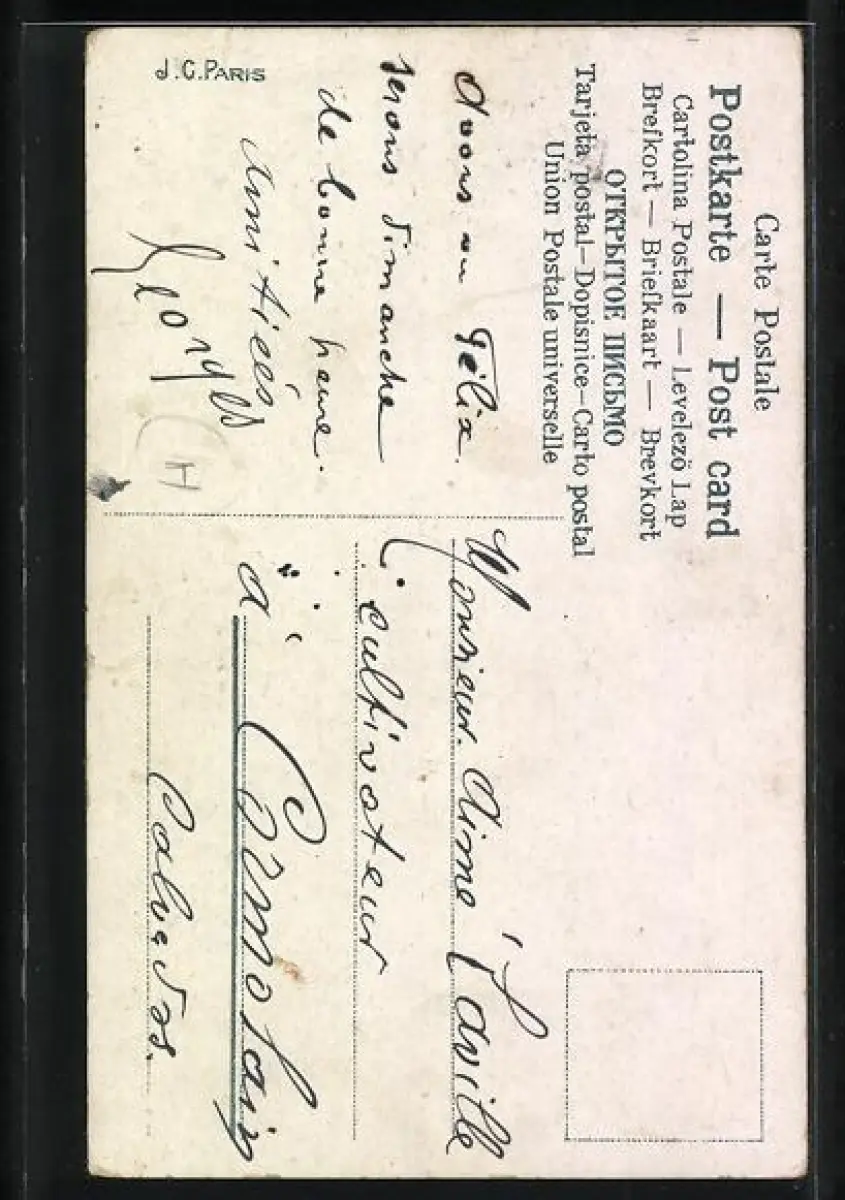 Carte Postale
Postkarte — Post card
Cartolina Postale — Levelező Lap
Brefkort — Briefkaart — Brevkort
ОТКРЫТОЕ ПИСЬМО
Tarjeta postal—Dopisnice—Carto postal
Union Postale universelle
avons vu Félix.
serons dimanche
de bonne heure.
Amitiées
Georges
H
J.C. PARIS
Monsieur. Aimé
Cultivateur
à
Calvados.